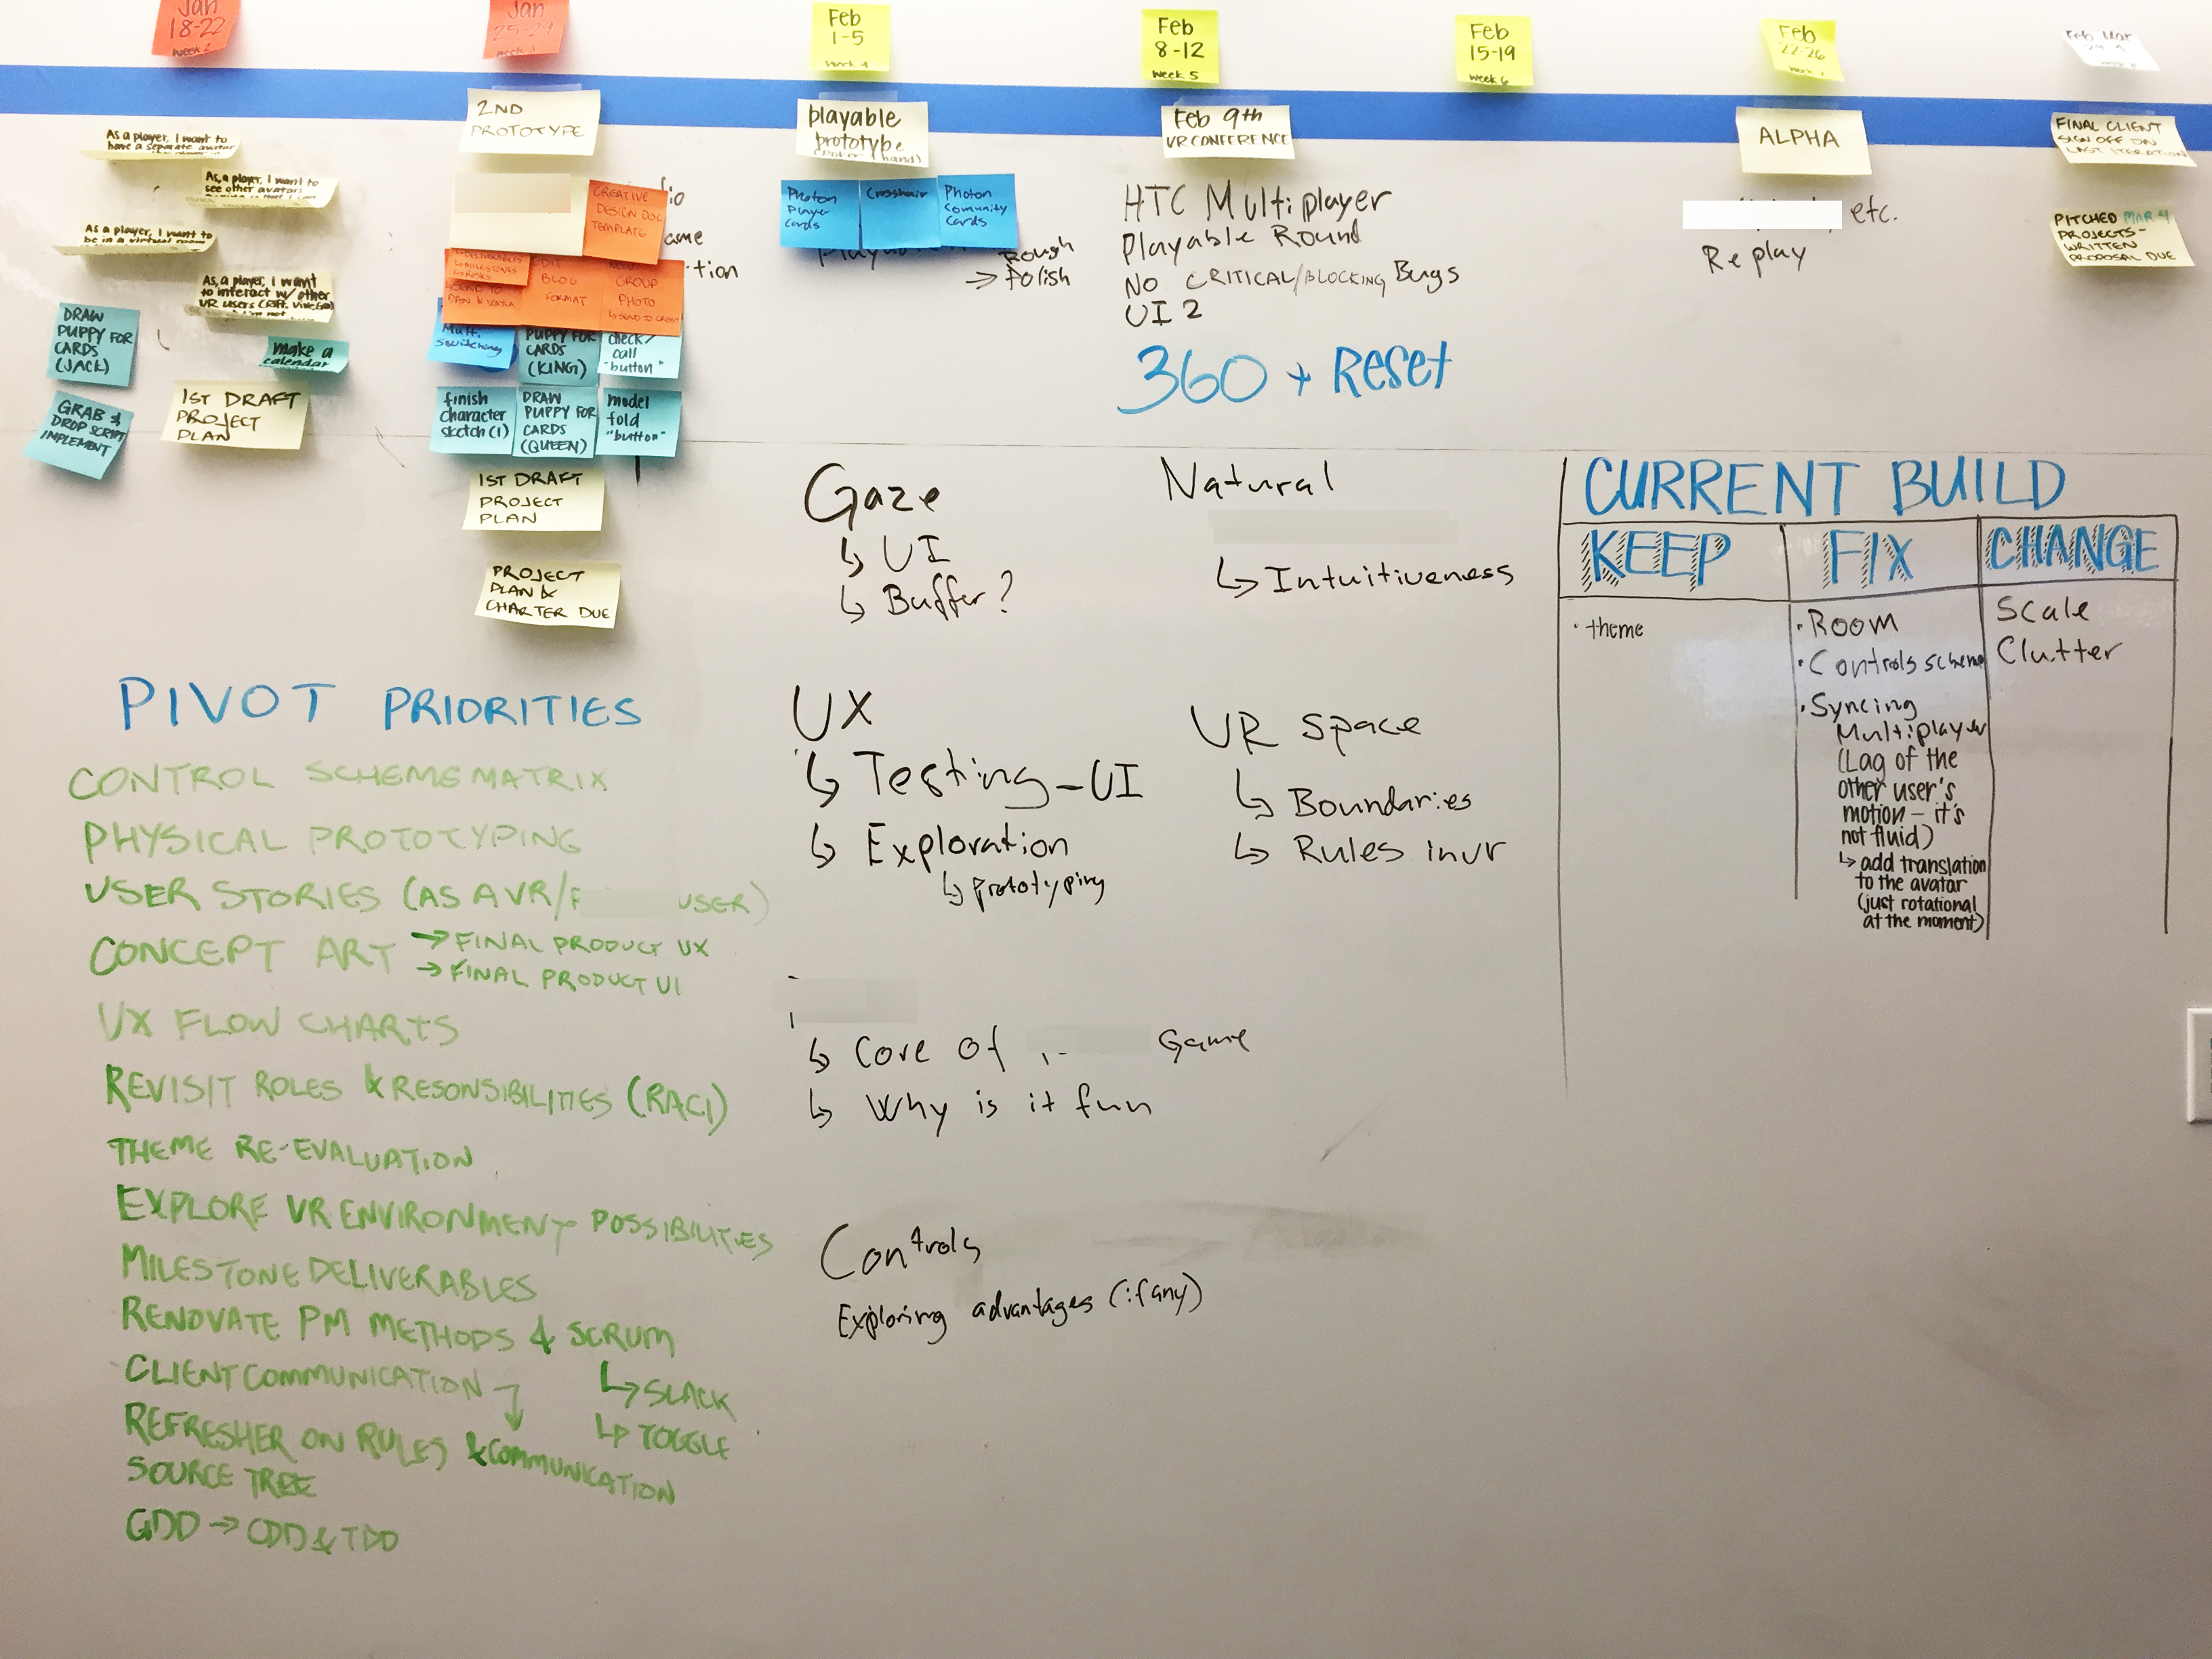 Jan
18-22
week 2
Jan
25-29
Feb
1-5
Feb
8-12
week 5
Feb
15-19
week 6
Feb
22-26
Feb Mar
2ND
PROTOTYPE
playable
prototype
Feb 9th
VR CONFERENCE
ALPHA
FINAL CLIENT
SIGN OFF ON
LAST ITERATION
As a player, I want to
have a separate avatar
As, a player, I want to
see other avatars
As a player, I want to
be in a virtual room
As, a player, I want
to interact w/ other
DRAW
PUPPY FOR
CARDS
(JACK)
make a
calendar
GRAB &
DROP SCRIPT
IMPLEMENT
1ST DRAFT
PROJECT
PLAN
CREATIVE
DESIGN DOC
TEMPLATE
BLOG
FORMAT
GROUP
PHOTO
switching
PUPPY FOR
CARDS
(KING)
check/
call
"button"
finish
character
sketch (1)
DRAW
PUPPY FOR
CARDS
(QUEEN)
model
fold
"button"
1ST DRAFT
PROJECT
PLAN
PROJECT
PLAN &
CHARTER DUE
Photon
Player
Cards
Crosshair
Photon
Comunity
Cards
Rough
→ Polish
HTC Multiplayer
Playable Round
No CRITICAL/BLOCKING Bugs
UI 2
360 + Reset
etc.
Replay
PITCHED MAR 4
PROJECTS-
WRITTEN
PROPOSAL DUE
Gaze
↳ UI
↳ Buffer?
Natural
↳ Intuitiveness
UX
↳ Testing - UI
↳ Exploration
↳ prototyping
VR space
↳ Boundaries
↳ Rules in vr
↳ Core of Game
↳ Why is it fun
Controls
Exploring advantages (if any)
CURRENT BUILD
KEEP
FIX
CHANGE
• theme
• Room
• Controls scheme
• Syncing
Multiplayer
(Lag of the
other user's
motion - it's
not fluid)
↳ add translation
to the avatar
(just rotational
at the moment)
Scale
Clutter
PIVOT PRIORITIES
CONTROL SCHEME MATRIX
PHYSICAL PROTOTYPING
USER STORIES (AS A VR/ USER)
CONCEPT ART → FINAL PRODUCT UX
→ FINAL PRODUCT UI
UX FLOW CHARTS
REVISIT ROLES & RESONSIBILITIES (RACI)
THEME RE-EVALUATION
EXPLORE VR ENVIRONMENT POSSIBILITIES
MILESTONE DELIVERABLES
RENOVATE PM METHODS & SCRUM
↳ SLACK
↳ TOGGLE
CLIENT COMMUNICATION
REFRESHER ON RULES & COMMUNICATION
SOURCE TREE
GDD → CDD & TDD